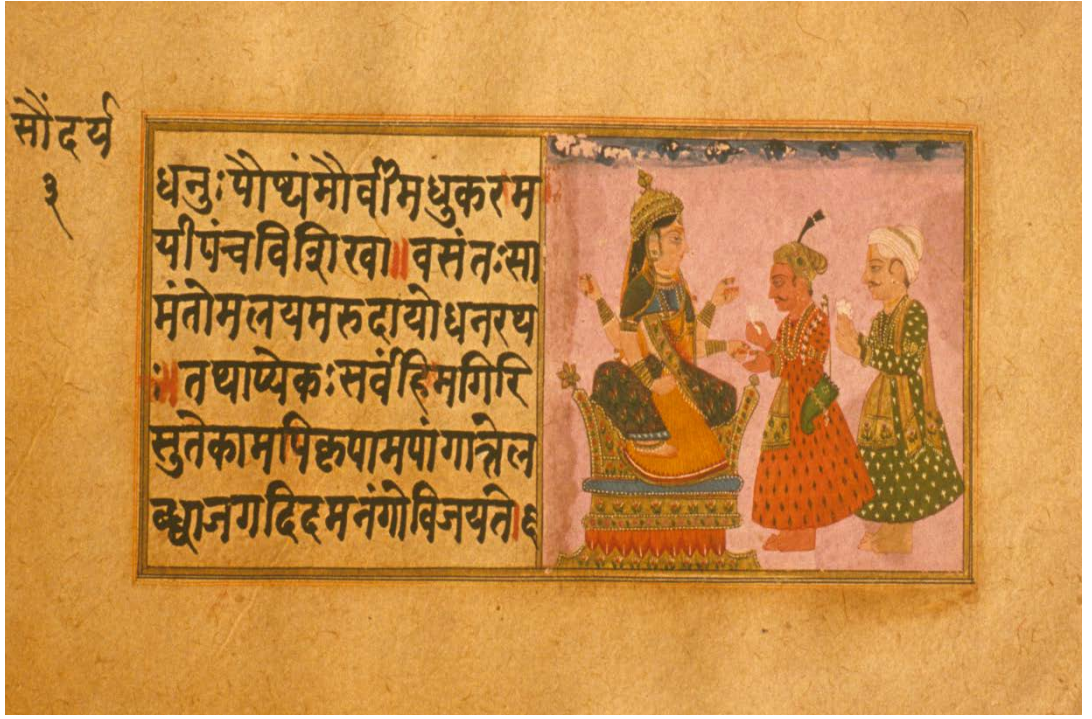 सौंदर्य
३
धनुःपौष्पंमौर्वीमधुकरम
यीपंचविशिखा॥वसंतःसा
मंतोमलयमरुदायोधनरथ
ः॥तथाप्येकःसर्वंहिमगिरि
सुतेकामपिकृपामपांगात्तेल
ब्ध्वाजगदिदमनंगोविजयते।६